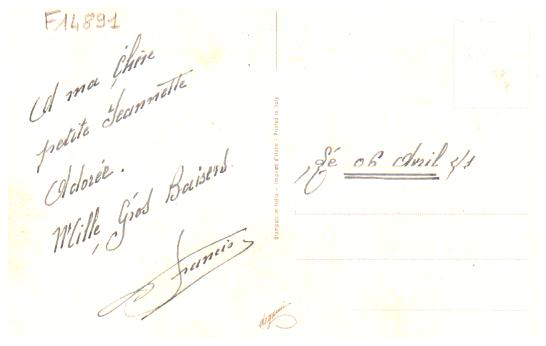 F14891
A ma Chère
petite Jeannette
Adorée.
Mille Gros Baisers.
Francis
Stampato in Italia - Imprimé d'Italie - Printed in Italy
Le 06 Avril 51